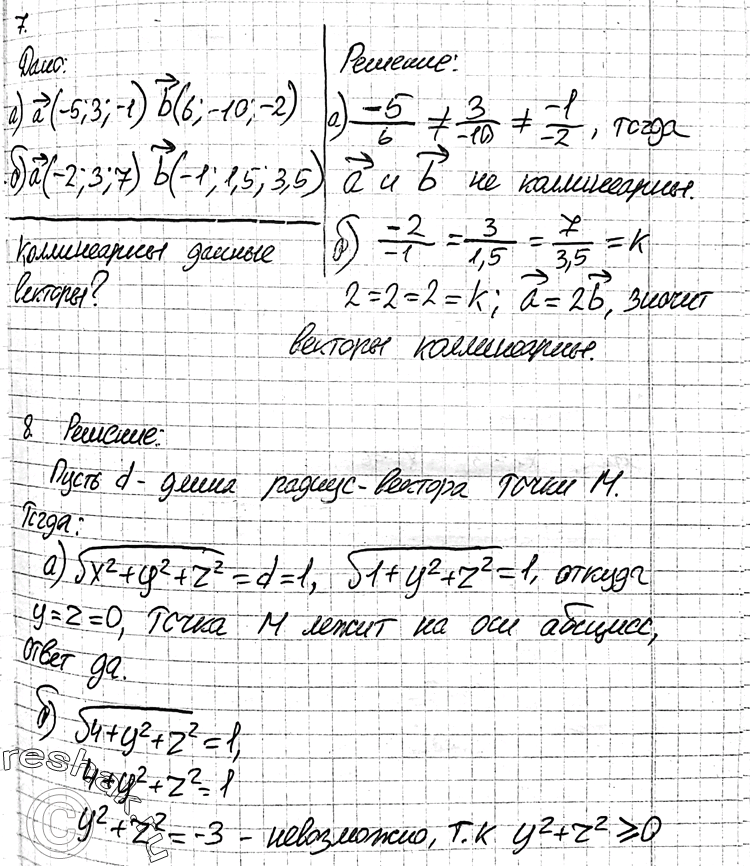 7.
Дано:
а) a⃗(-5; 3; -1) b⃗(6; -10; -2)
б) a⃗(-2; 3; 7) b⃗(-1; 1,5; 3,5)
Коллинеарны данные
векторы?
Решение:
а) -5/6 ≠ 3/-10 ≠ -1/-2, тогда
a⃗ и b⃗ не коллинеарны.
б) -2/-1 = 3/1,5 = 7/3,5 = k
2 = 2 = 2 = k; a⃗ = 2b⃗, значит
векторы коллинеарны.
8. Решение:
Пусть d - длина радиус-вектора точки M.
Тогда:
а) √(x²+y²+z²) = d = 1, √(1+y²+z²) = 1, откуда
y = z = 0, точка M лежит на оси абсцисс,
ответ да.
б) √(4+y²+z²) = 1,
4+y²+z² = 1
y²+z² = -3 - невозможно, т.к y²+z² ≥ 0
reshak.ru
©